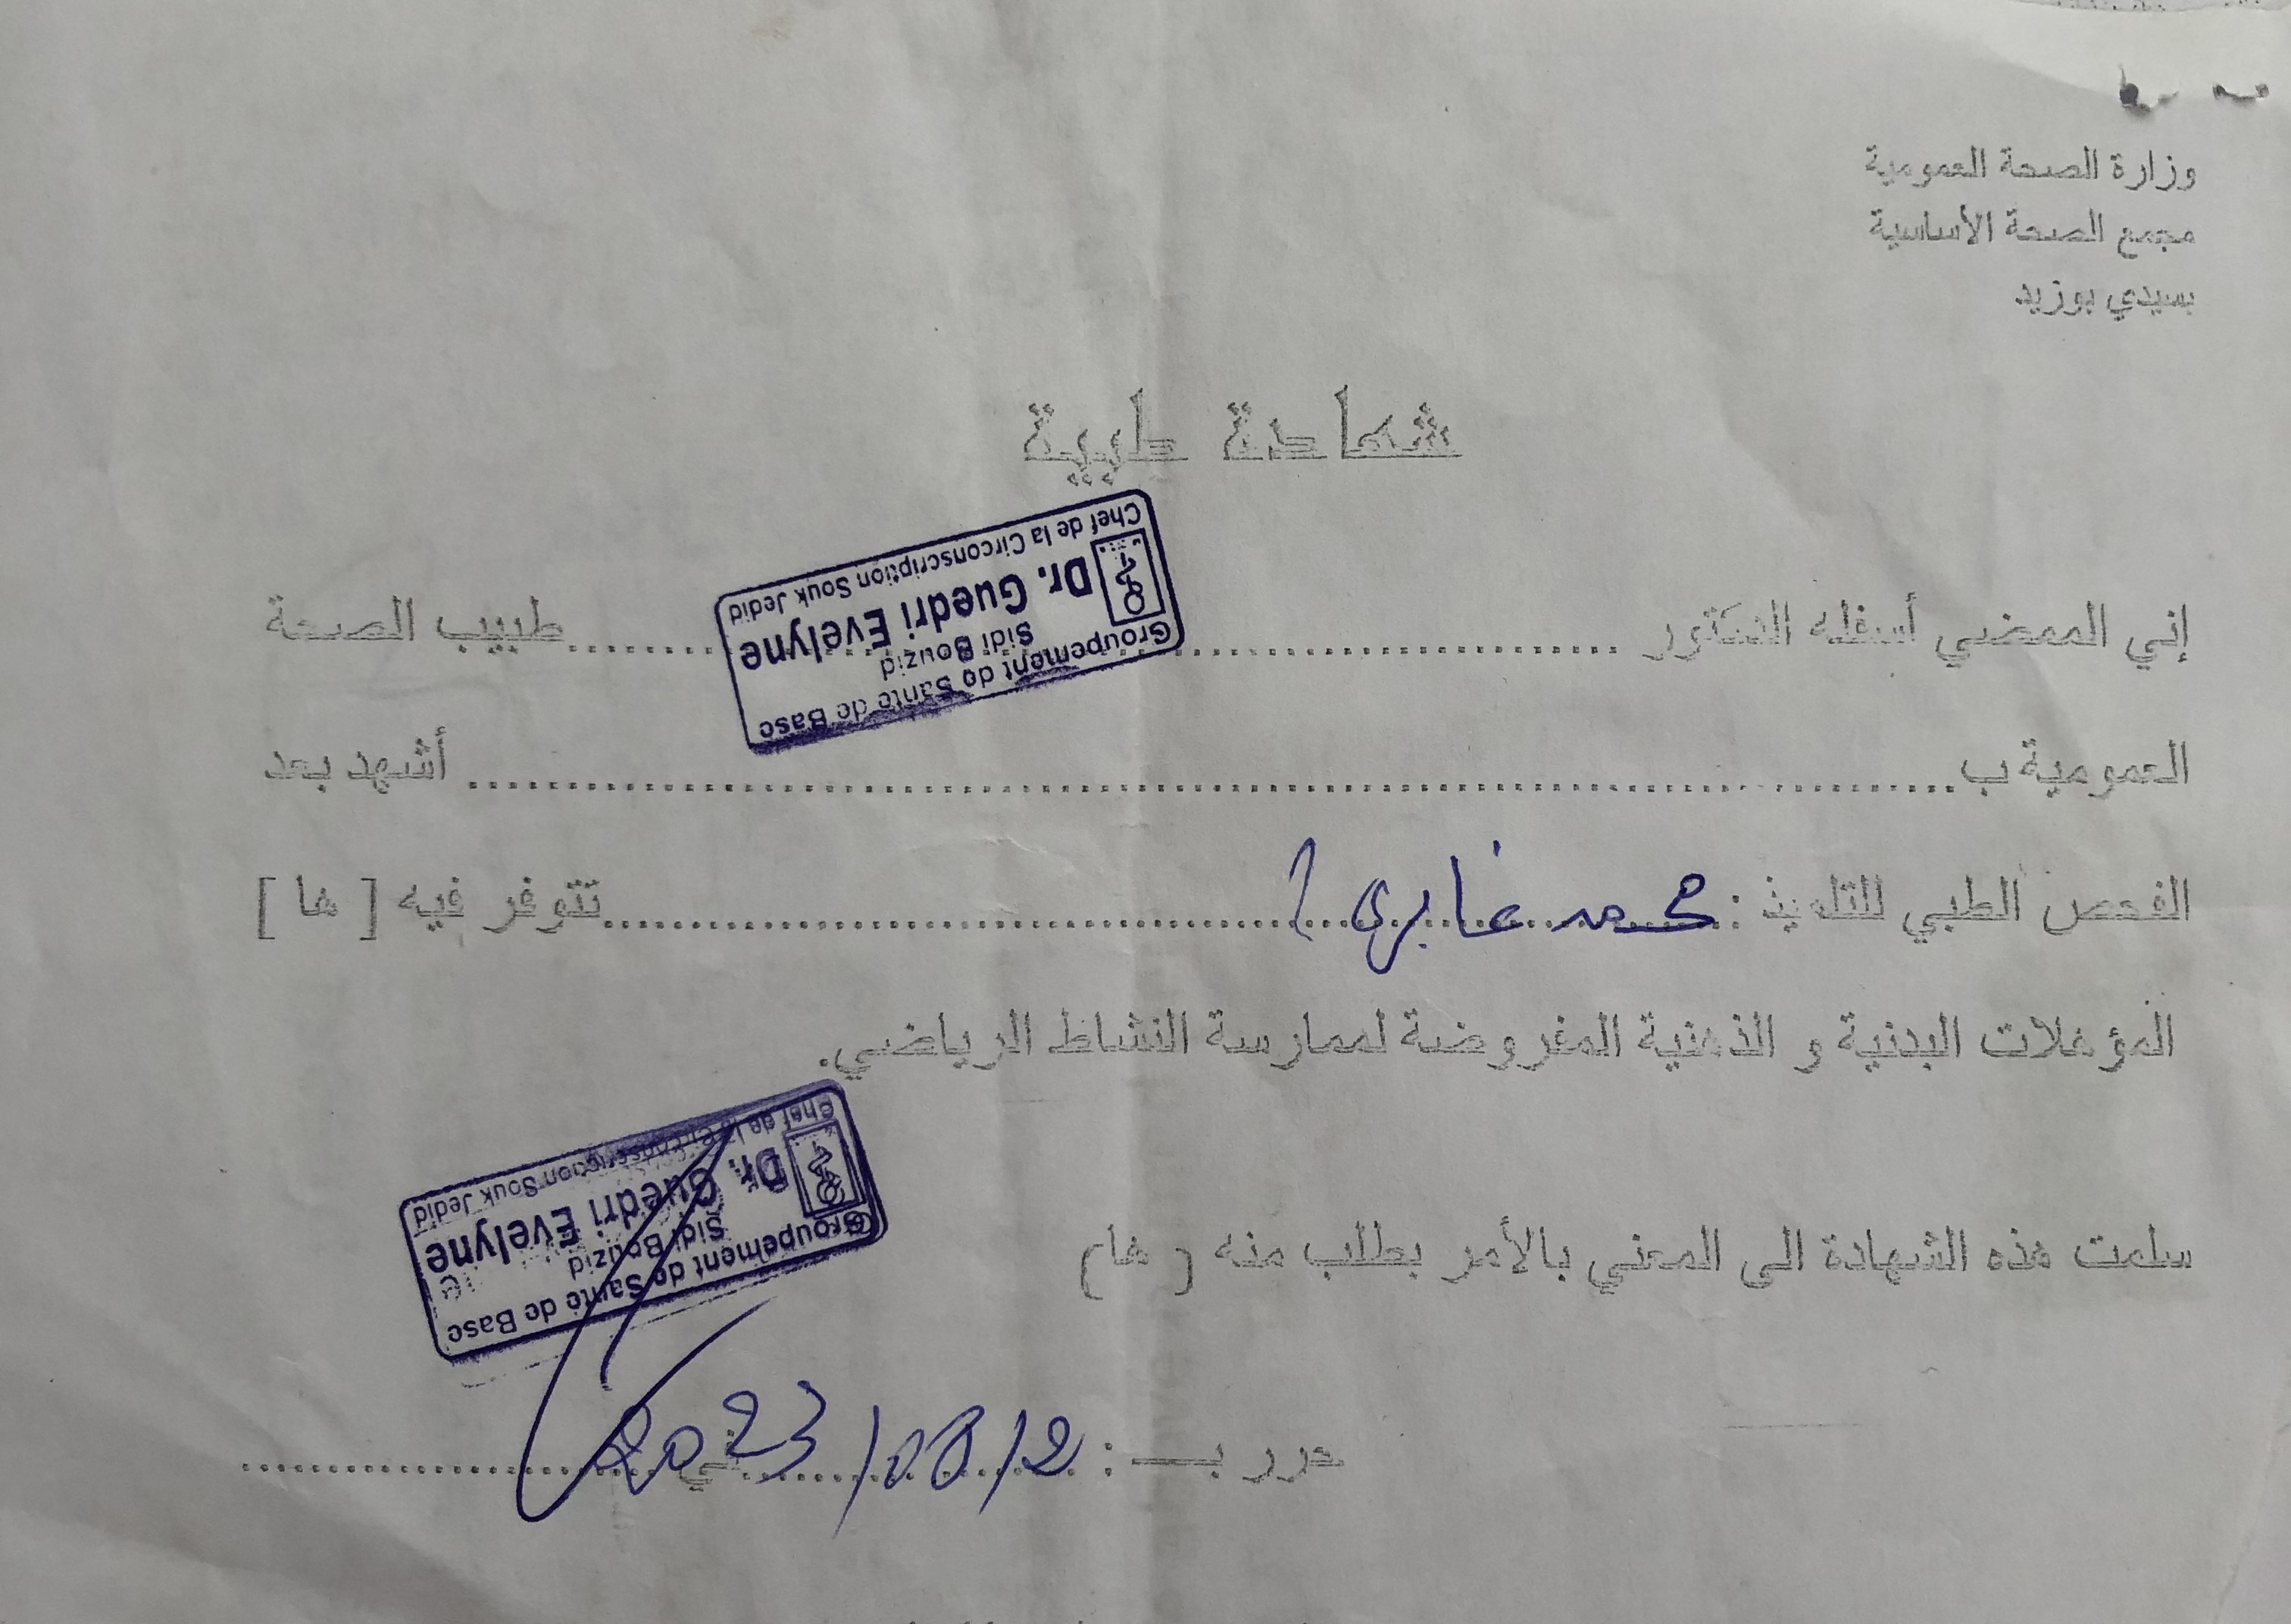 وزارة الصحة العمومية
مجمع الصحة الأساسية
بسيدي بوزيد
شهادة طبية
إني الممضي أسفله الدكتور ........................ طبيب الصحة
Groupement de Santé de Base
Sidi Bouzid
Dr. Guedri Evelyne
Chef de la Circonscription Souk Jedid
العمومية ب........................ أشهد بعد
الفحص الطبي للتلميذ : محمد غابري ........................ تتوفر فيه [ ها ]
المؤهلات البدنية و الذهنية المفروضة لممارسة النشاط الرياضي.
Groupement de Santé de Base
Sidi Bouzid
Dr. Guedri Evelyne
Chef de la Circonscription Souk Jedid
سلمت هذه الشهادة الى المعني بالأمر بطلب منه ( ها)
حرر بـ : 2023/08/12 في ........................